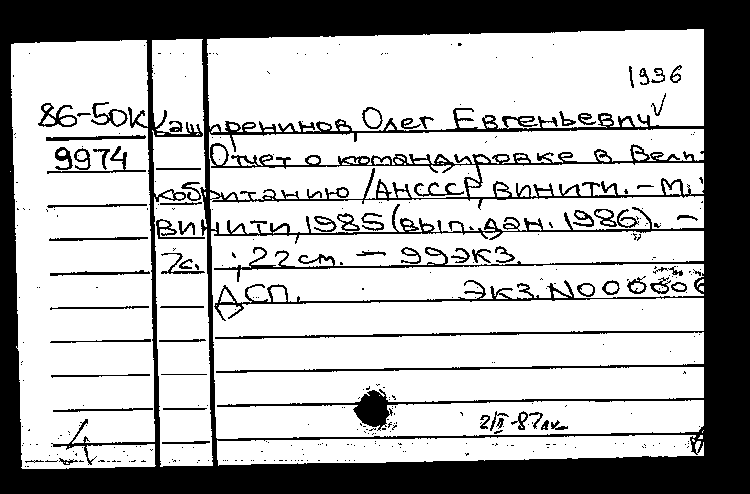 1996
86-50К Каширенинов, Олег Евгеньевич
9974 Отчет о командировке в Вели-
кобританию / АНСССР, ВИНИТИ. - М.:
ВИНИТИ, 1985 (вып. дан. 1986). -
7с. ; 22 см. - 99 ЭКЗ.
ДСП. ЭКЗ. N 000006
2/II-87